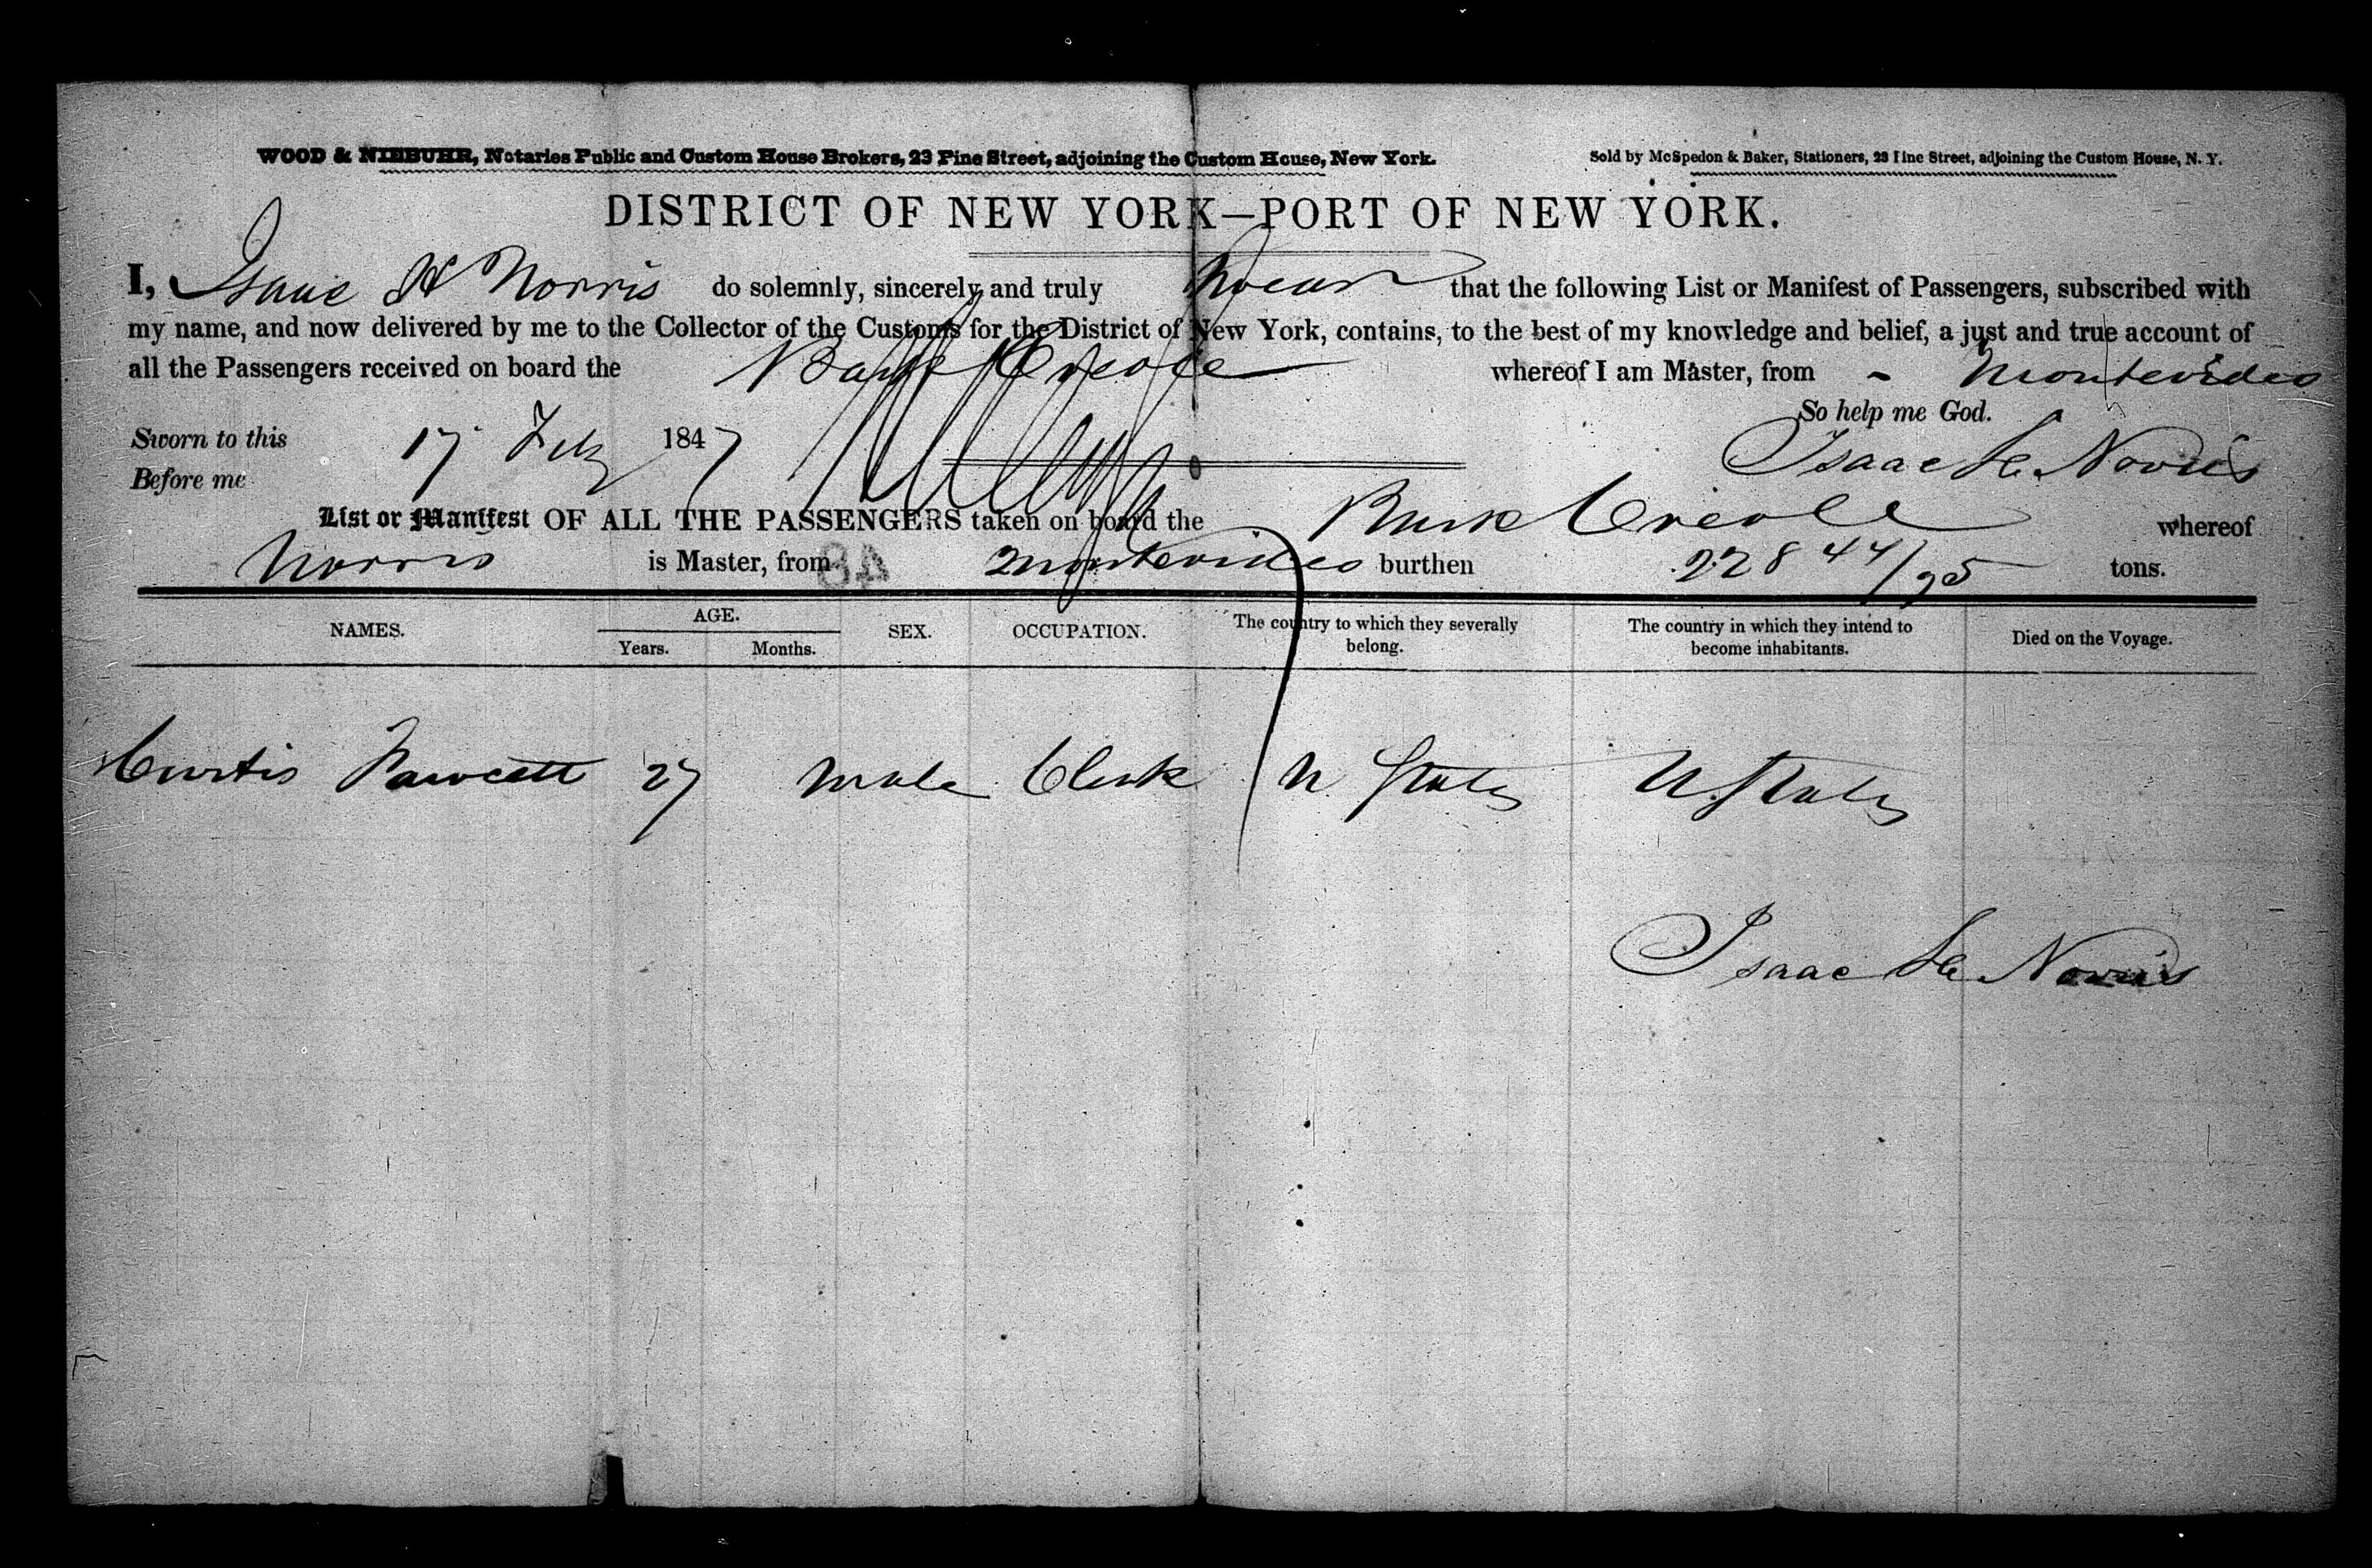 WOOD & NIEBUHR, Notaries Public and Custom House Brokers, 23 Pine Street, adjoining the Custom House, New York. Sold by McSpedon & Baker, Stationers, 23 Pine Street, adjoining the Custom House, N. Y.
DISTRICT OF NEW YORK—PORT OF NEW YORK.
I, Isaac H Norris do solemnly, sincerely and truly swear that the following List or Manifest of Passengers, subscribed with
my name, and now delivered by me to the Collector of the Customs for the District of New York, contains, to the best of my knowledge and belief, a just and true account of
all the Passengers received on board the Bark Creole whereof I am Master, from Montevideo
So help me God.
Sworn to this 17 Feby 1847 Isaac H Norris
Before me
List or Manifest OF ALL THE PASSENGERS taken on board the Bark Creole whereof
Norris is Master, from Montevideo burthen 228 44/95 tons.
NAMES. AGE. SEX. OCCUPATION. The country to which they severally belong. The country in which they intend to become inhabitants. Died on the Voyage.
Years. Months.
Curtis Fawcett 27 Male Clerk U States U. States
Isaac H Norris